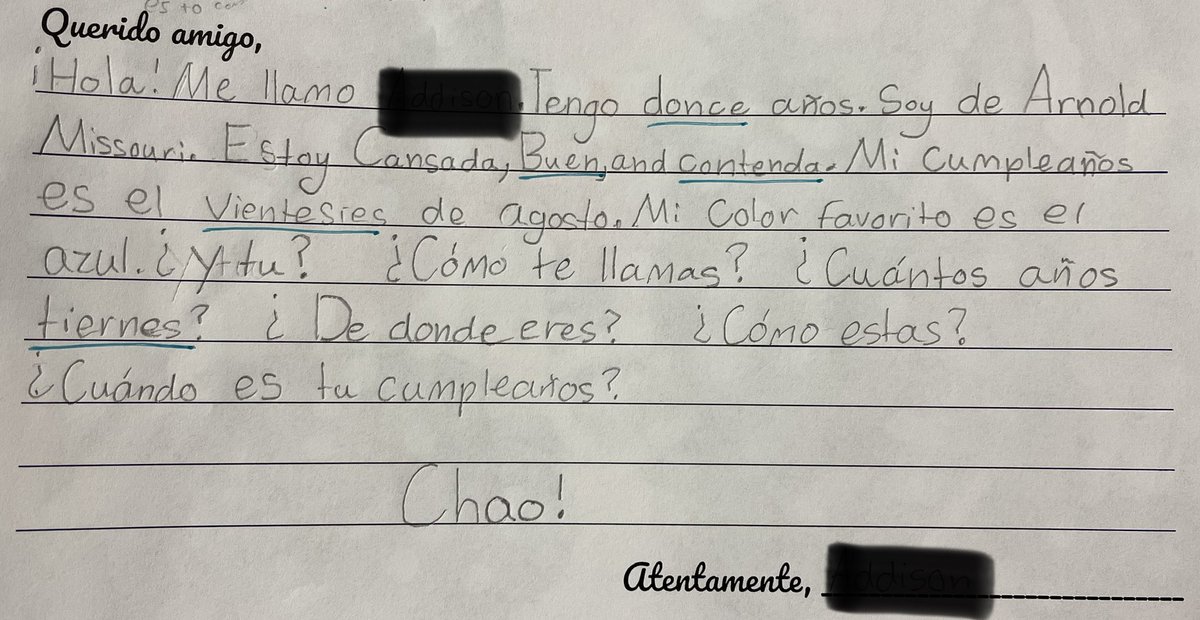 es to
Querido amigo,
¡Hola! Me llamo . Tengo donce años. Soy de Arnold
Missouri. Estoy Cansada, Buen, and contenda. Mi cumpleaños
es el vientesies de agosto. Mi color favorito es el
azul. ¿Y tu? ¿Cómo te llamas? ¿Cuántos años
tiernes? ¿De donde eres? ¿Cómo estas?
¿Cuándo es tu cumpleaños?
Chao!
Atentamente,